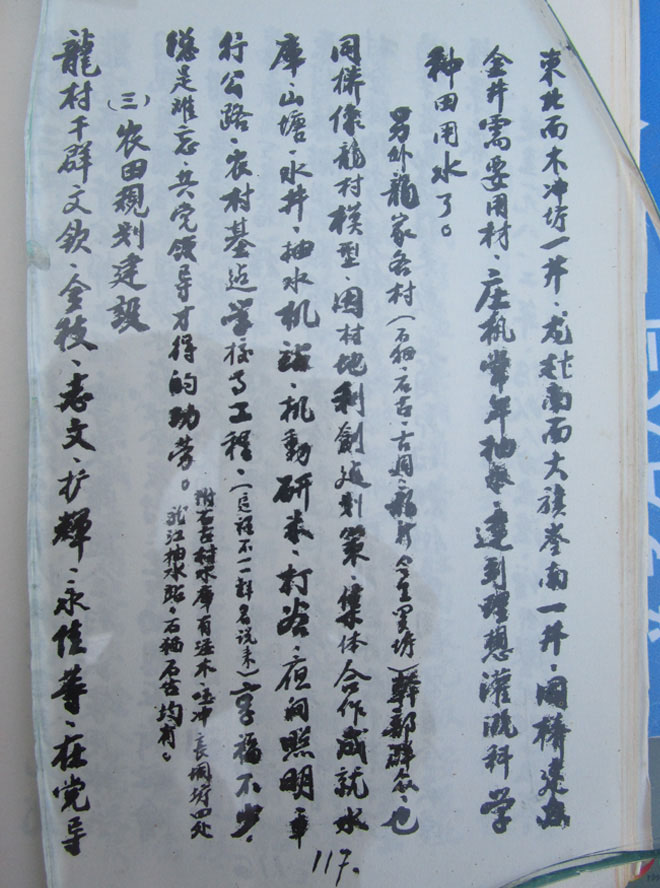 東北面木冲塝一井、龙社南面大旗岺南一井、同樣建
金井需要用材、庄机常年抽水、達到理想灌溉科学
种田用水了。
另外龍家各村（石栖、石古、古週、龍打、金生里塘）幹部群众、也
同樣像龍村模型、因村地利創造对策、集体合作成就水
庫、山塘、水井、抽水机站、机動研末、打谷、夜间照明、車
行公路、农村基造学校与工程、（这裡不一一群名说来）享福不少、
总是难忘、共党领导才得的功劳。
附石古村水庫有逕木、冲、長塝四处
龙江抽水站、石栖石古均有。
（三）农田規划建設
龍村干群文欽、金枝、志文、扩輝、永佳等、在党导
117.